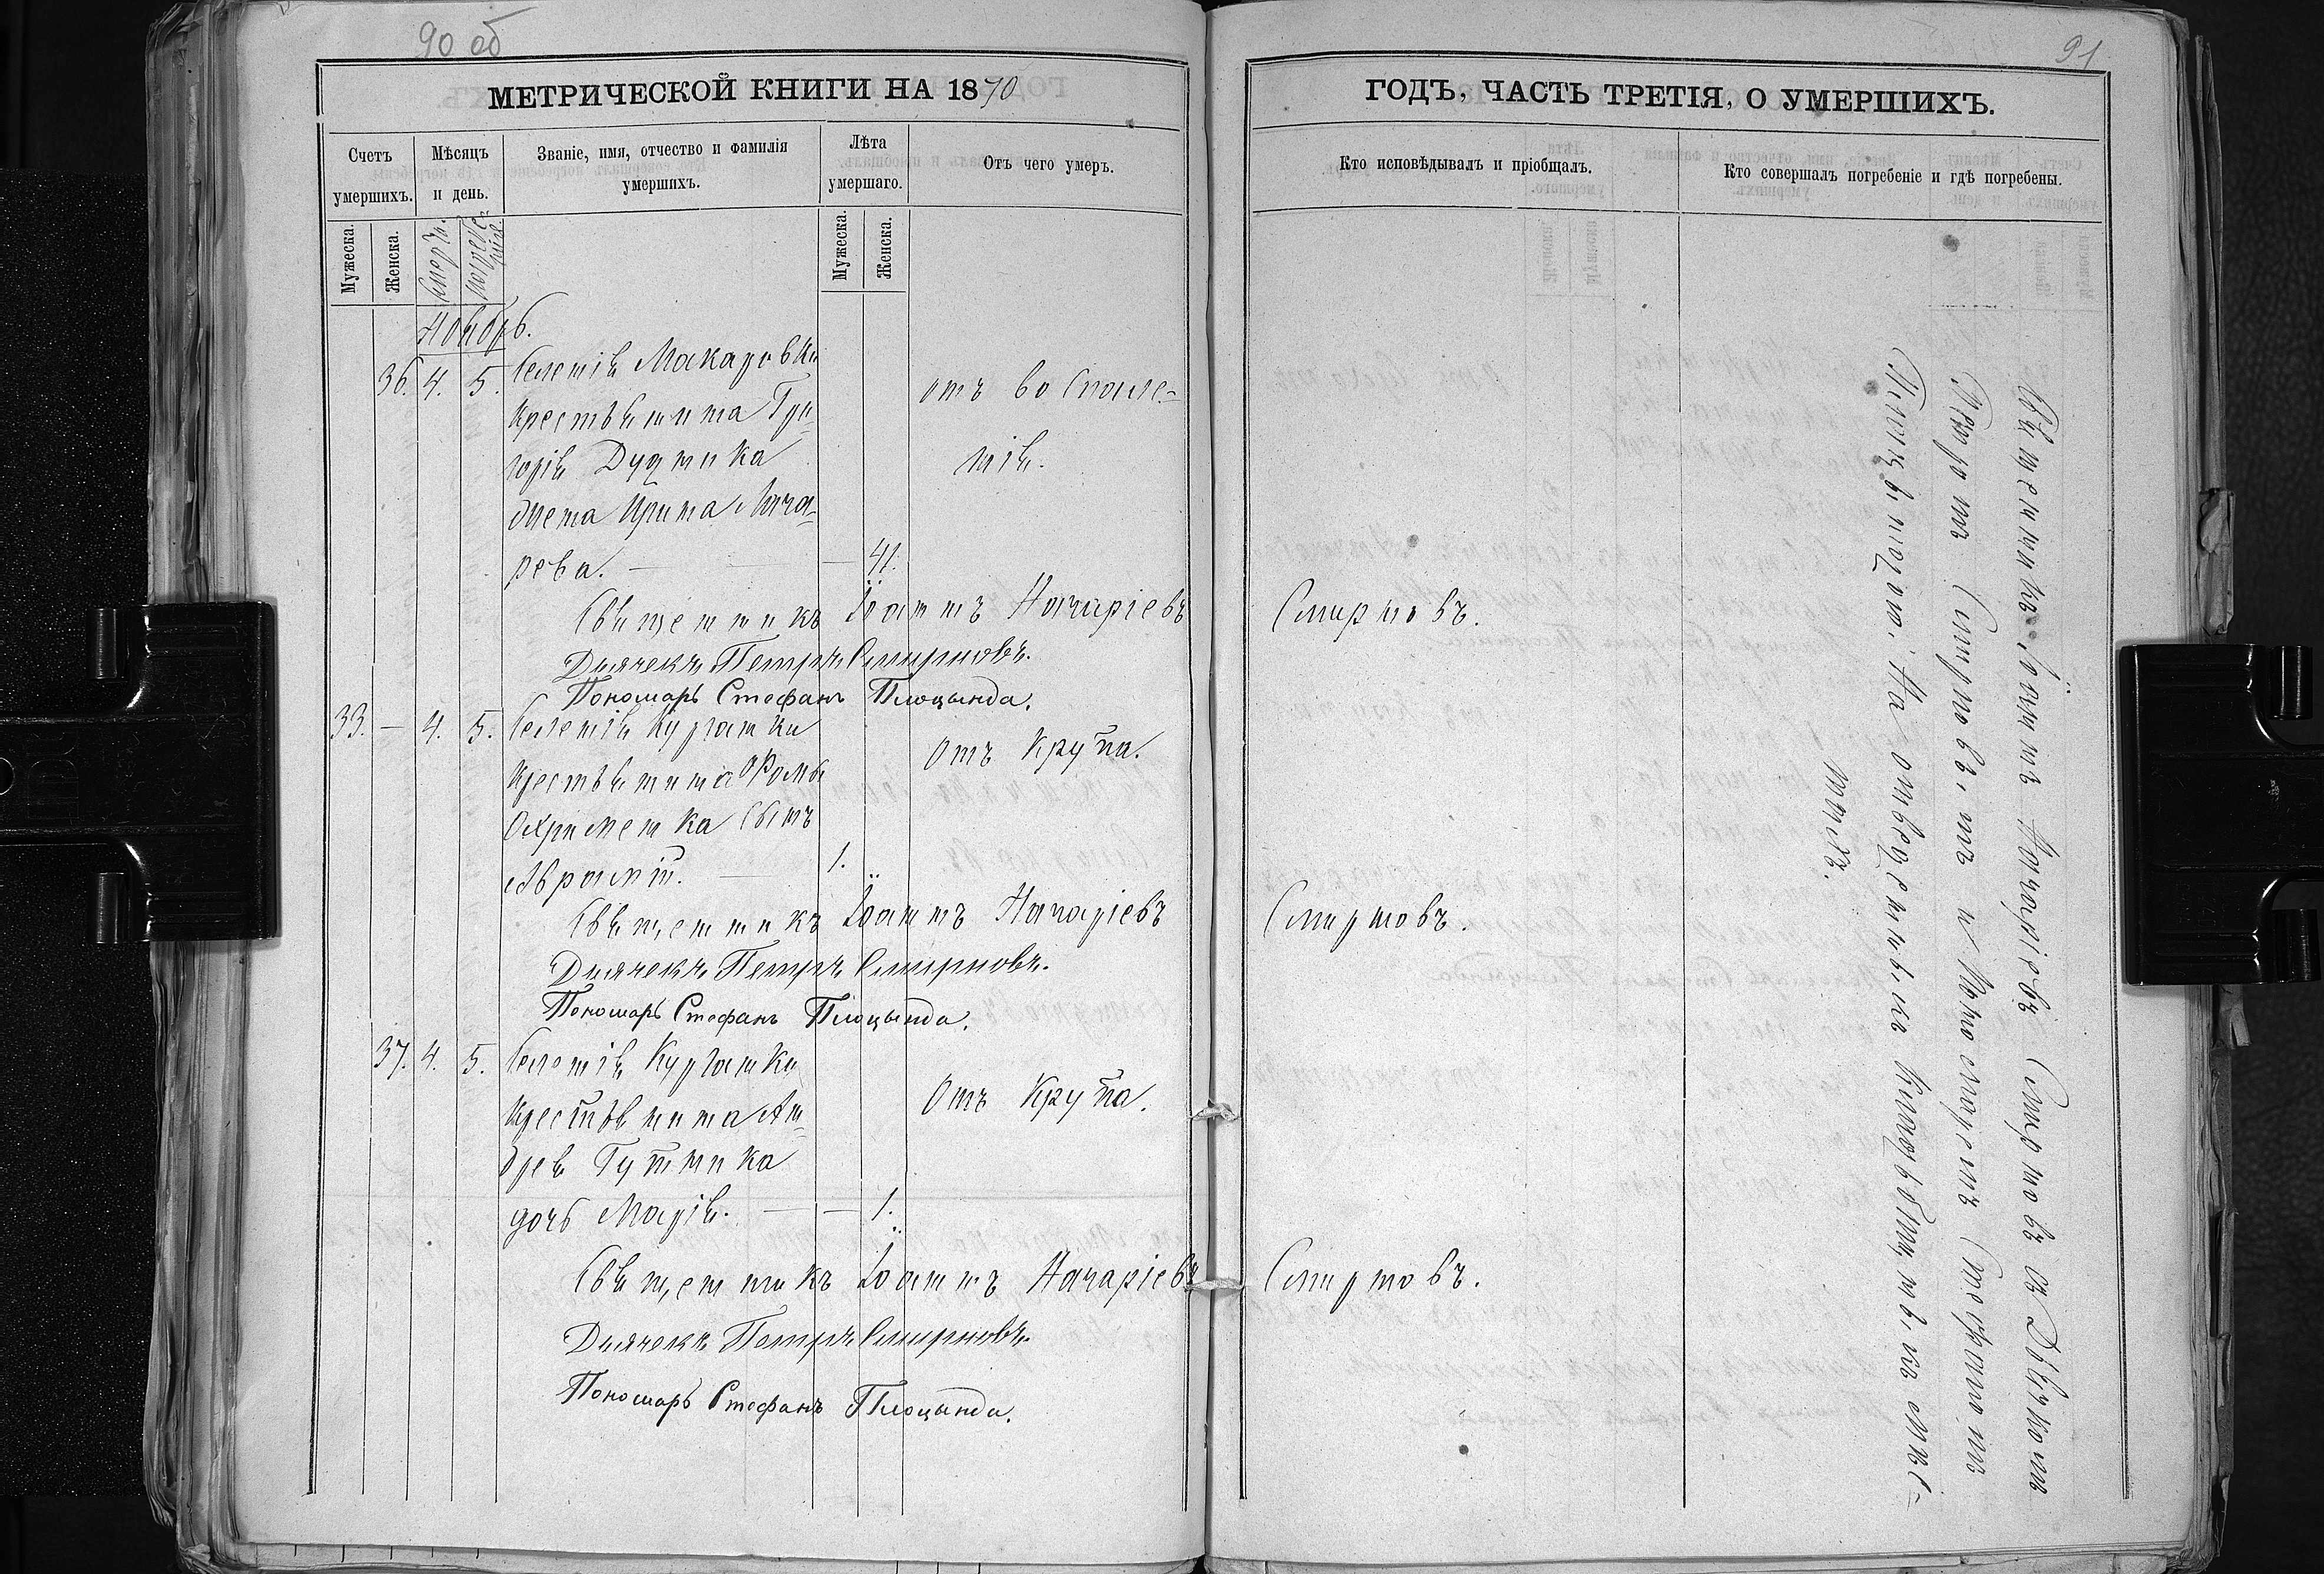 90 об
МЕТРИЧЕСКОЙ КНИГИ НА 1870
Счетъ умершихъ.
Мѣсяцъ и день.
Званіе, имя, отчество и фамилія умершихъ.
Лѣта умершаго.
Отъ чего умеръ.
Мужеска.
Женска.
смерти.
погребенія.
Мужеска.
Женска.
Ноябрь.
36. 4. 5. Селенія Макаровки
крестьянина Гри=
горія Дудника отъ воспале=
жена Ирина Лаза= нія.
рева. — — — 41.
Священникъ Іоаннъ Назаріевъ
Дьячекъ Петръ Смирновъ.
Пономарь Стефанъ Плоцында.
33. — 4. 5. Селенія Курганки
крестьянина Ѳомы отъ крупа.
Охрименка сынъ
Аврамій. — 1.
Священникъ Іоаннъ Назаріевъ
Дьячекъ Петръ Смирновъ.
Пономарь Стефанъ Плоцында.
37. 4. 5. Селенія Курганки
крестьянина Ан= отъ крупа.
дрея Гутника
дочь Марія. — — 1.
Священникъ Іоаннъ Назаріевъ
Дьячекъ Петръ Смирновъ.
Пономарь Стефанъ Плоцында.
91
ГОДЪ, ЧАСТЬ ТРЕТІЯ, О УМЕРШИХЪ.
Кто исповѣдывалъ и пріобщалъ.
Кто совершалъ погребеніе и гдѣ погребены.
Смирновъ.
Смирновъ.
Смирновъ.
Священникъ Іоаннъ Назаріевъ Смирновъ съ Дьячкомъ
Петромъ Смирновымъ и Пономаремъ Стефаномъ
Плоцындою. На отведенномъ кладбищѣ